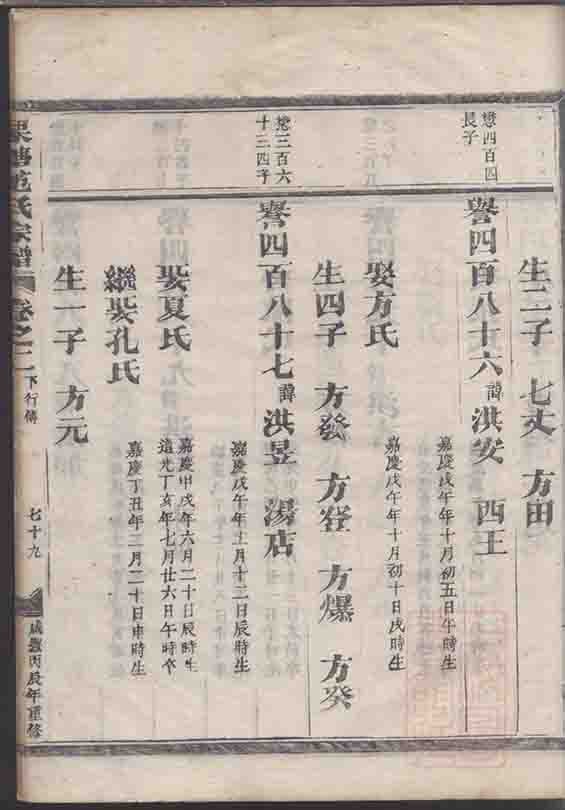 生二子 七丈 方田
懋四百四
長子
譽四百八十六 諱 洪安 西王
嘉慶戊午年十月初五日午時生
娶方氏
嘉慶戊午年十月初十日戌時生
生四子 方發 方登 方爆 方癸
懋三百六
十三四子
譽四百八十七 諱 洪昱 湯店
嘉慶戊午年十一月十二日辰時生
娶夏氏
嘉慶甲戌年六月二十日辰時生
道光丁亥年七月廿六日午時卒
繼娶孔氏
嘉慶丁丑年二月二十日申時生
生一子 方元
范氏宗譜 卷之二 下行傳 七十九 咸豐丙辰年重修